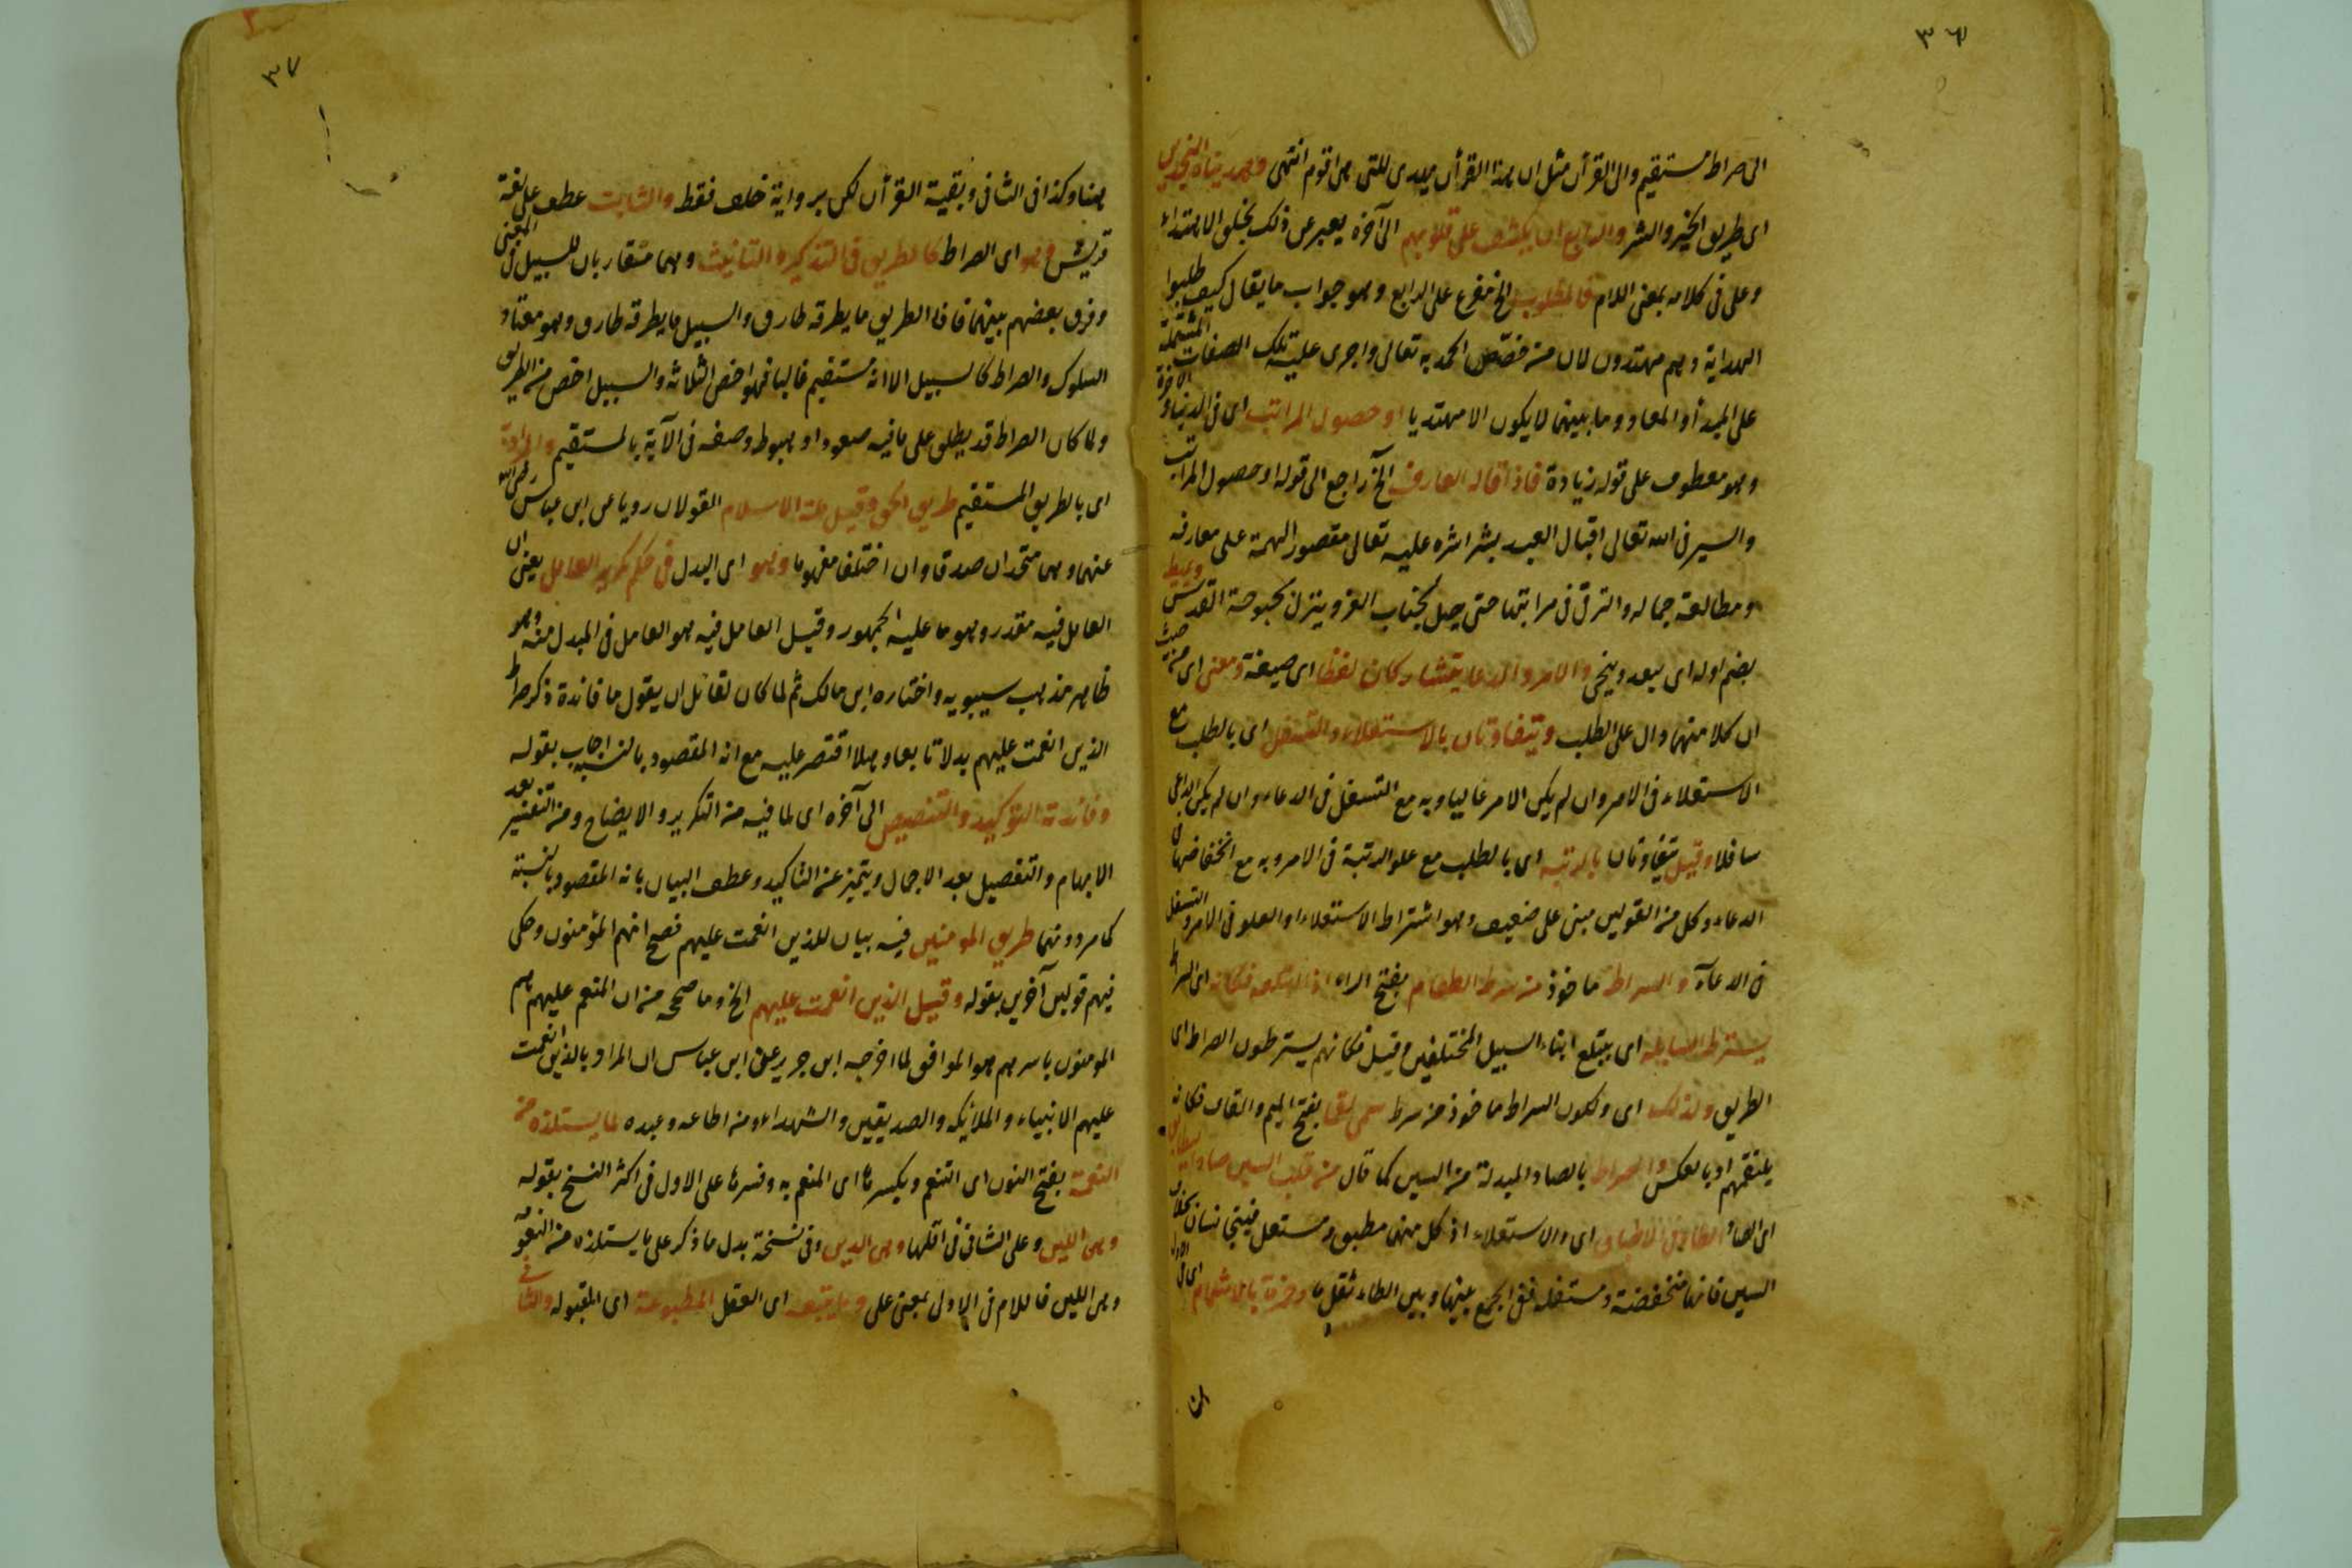 ٣٦
الى صراط مستقيم والى القرآن مثل ان هذا القرآن يهدى للتى هى اقوم انتهى وهديناه النجدين
اى طريق الخير والشر والرابع ان يكشف على قلوبهم الى آخره يعبر عن ذلك بخلق الاهتداء
وعلى فى كلامه بمعنى اللام فالمطلوب الخ مفرع على الرابع وهو جواب ما يقال كيف طلبوا
الهداية وهم مهتدون لان من خصّص الحمد به تعالى واجرى عليه تلك الصفات المشتملة
على المبدأ والمعاد وما بينهما لا يكون الا مهتديا او حصول المراتب اى فى الدنيا والآخرة
وهو معطوف على قوله زيادة فاذا قاله العارف الخ راجع الى قوله او حصول المراتب
والسير فى الله تعالى اقبال العبد بشراشره عليه تعالى مقصور الهمة على معارفه
ومطالعة جماله والترقى فى مراتبها حتى يصل بجناب العز وينزل بحبوحة القدس ويميط
بضم اوله اى يبعد وينحى والامر والدعا يتشاركان لفظا اى صيغة ومعنى اى من حيث
ان كلا منهما دال على الطلب ويتفاوتان بالاستعلاء والتسفل اى بالطلب مع
الاستعلاء فى الامر وان لم يكن الامر عاليا وبه مع التسفل فى الدعاء وان لم يكن الداعى
سافلا وقيل يتفاوتان بالرتبة اى بالطلب مع علو الرتبة فى الامر وبه مع انخفاضها فى
الدعاء وكل من القولين مبنى على ضعيف وهو اشتراط الاستعلاء او العلو فى الامر والتسفل
فى الدعاء والسراط ماخوذ من سرط الطعام بفتح الراء اذا ابتلعه فكانه اى السراط
يسترط السابلة اى يبتلع ابناء السبيل المختلفين وقيل فكانهم يسترطون الصراط اى
الطريق ولذلك اى ولكون السراط ماخوذ من سرط سمى لقما بفتح الميم والقاف فكانه
يلتقمهم او بالعكس والصراط بالصاد المبدلة من السين كما قال من قلب السين صادا ليطابق
اى الصاد الطاء فى الاطباق اى والاستعلاء اذ كل منهما مطبق ومستعل فيتجانسان بخلاف
السين فانها منخفضة ومستفلة ففى الجمع بينها وبين الطاء ثقل ما وحمزة بالاشمام اى فى الاول
٣٧
هنا وكذا فى الثانى وبقية القرآن لكن برواية خلف فقط والثابت عطف على لغة
قريش وهو اى الصراط كالطريق فى التذكير والتانيث وهما متقاربان للسبيل فى المعنى
وفرق بعضهم بينهما فان الطريق ما يطرقه طارق والسبيل ما يطرقه طارق وهو معتاد
السلوك والصراط كالسبيل الا انه مستقيم غالبا فهو اخص الثلاثة والسبيل اخص من الطريق
ولما كان الصراط قد يطلق على ما فيه صعود او هبوط وصفه فى الآية بالمستقيم والمراد به
اى بالطريق المستقيم طريق الحق وقيل ملة الاسلام القولان رويا عن ابن عباس رضى الله
عنهما وهما متحدان صدقا وان اختلفا مفهوما وهو اى البدل فى حكم تكرير العامل يعنى ان
العامل فيه مقدر وهو ما عليه الجمهور وقيل العامل فيه هو العامل فى المبدل منه وهو
ظاهر مذهب سيبويه واختاره ابن مالك ثم لما كان لقائل ان يقول ما فائدة ذكر صراط
الذين انعمت عليهم بدلا تابعا وهلا اقتصر عليه مع انه المقصود بالنسبة اجاب بقوله
وفائدته التوكيد والتنصيص الى آخره اى لما فيه من التكرير والايضاح ومن التفسير بعد
الابهام والتفصيل بعد الاجمال ويتميز عن التاكيد وعطف البيان بانه المقصود بالنسبة
كما مر دونهما طريق المومنين فيه بيان للذين انعمت عليهم فصح انهم المؤمنون وحكى
فيهم قولين آخرين بقوله وقيل الذين انعمت عليهم الخ وما صححه من ان المنعم عليهم هم
المومنون باسرهم هو الموافق لما اخرجه ابن جرير عن ابن عباس ان المراد بالذين انعمت
عليهم الانبياء والملائكه والصديقين والشهداء ومن اطاعه وعبده لما يستلذه من
النعمة بفتح النون اى التنعم وبكسرها اى المنعم به وفسرها على الاول فى اكثر النسخ بقوله
وهى اللين وعلى الثانى فى اقلها وهى الدين وفى نسخة بدل ما ذكر على ما يستلذه من النعمة
وهى اللين فاللام فى الاولى بمعنى على وما يتبعه اى العقل المطبوعة اى المقبوله والثانى